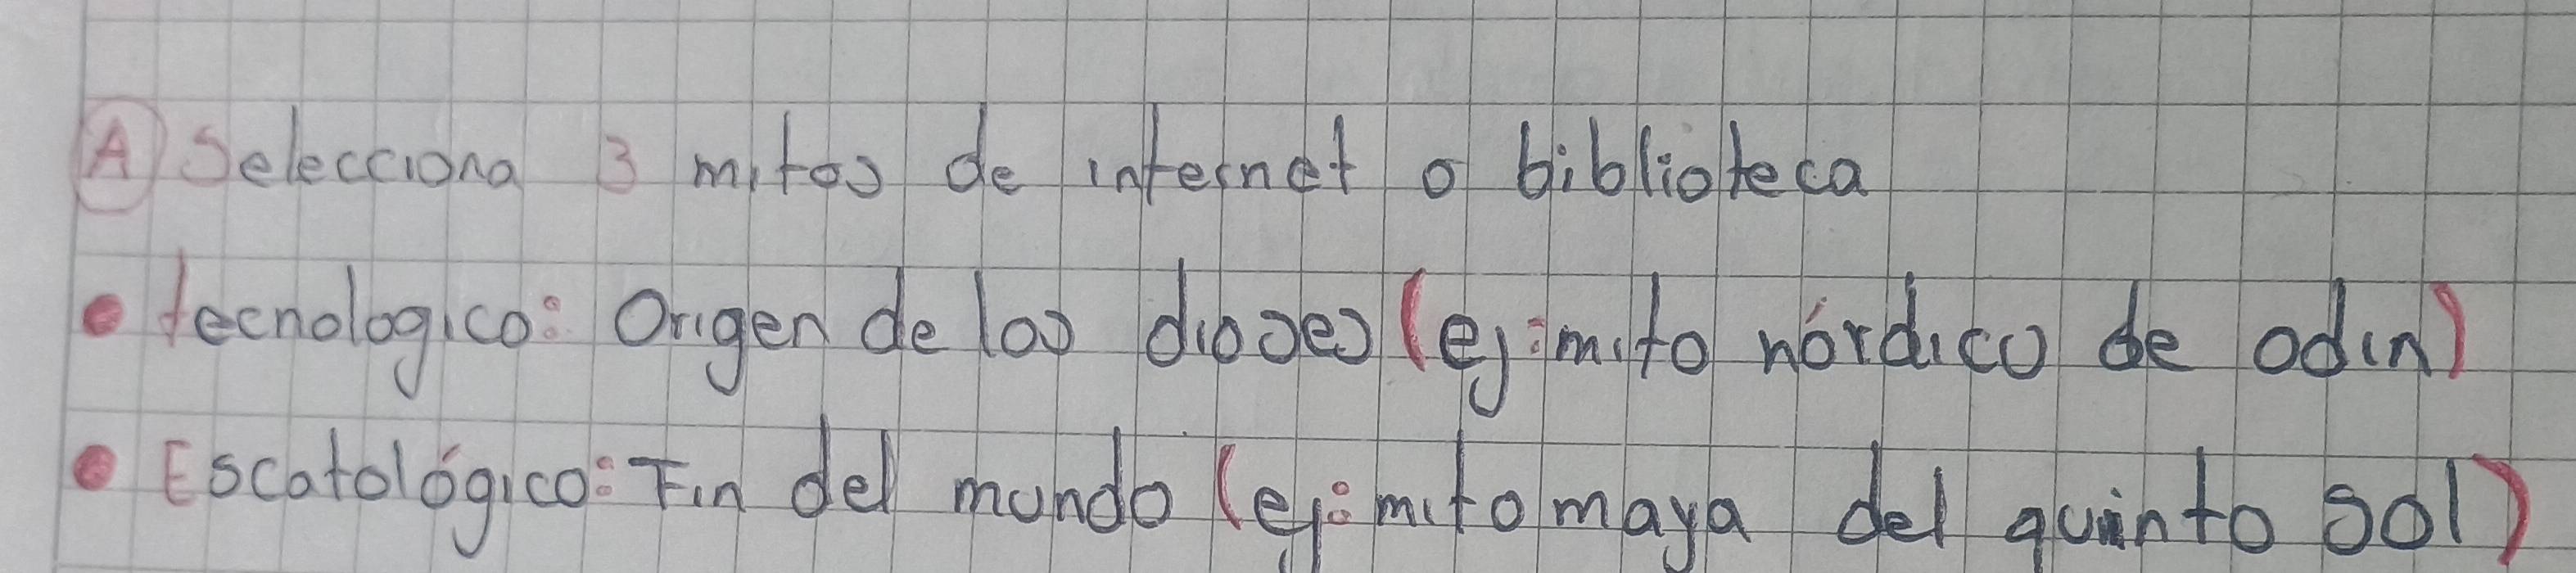 A Selecciona 3 mitos de internet o biblioteca
• tecnologico: Origen de los dioses (ej: mito nórdico de odin)
• Escatológico: Fin del mundo (ej: mito maya del quinto sol)